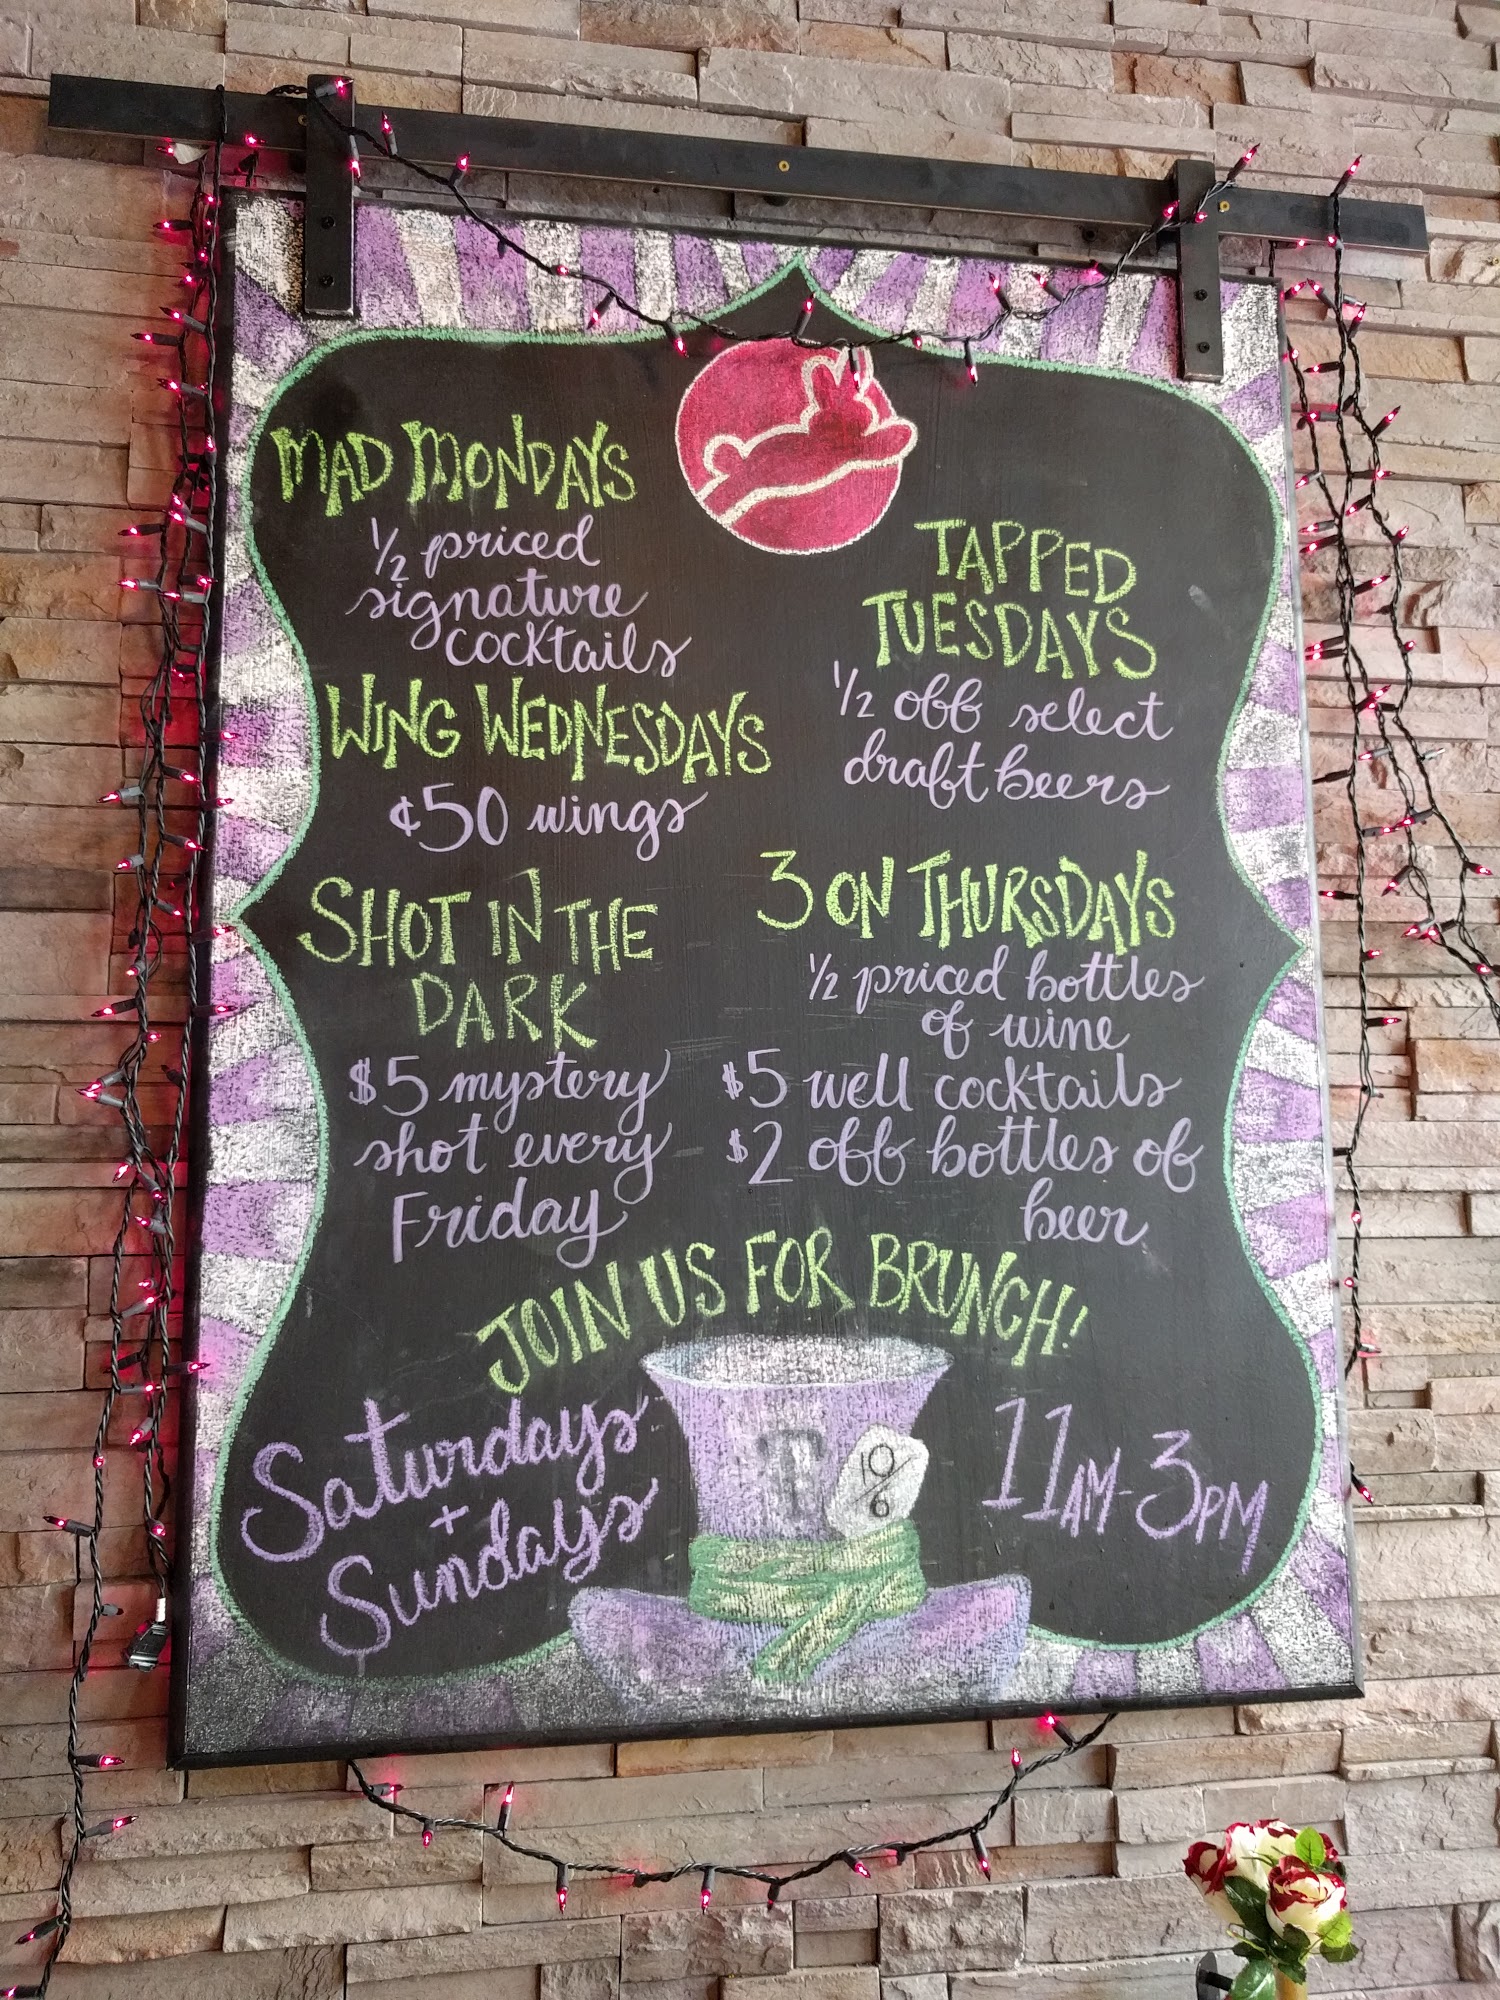 MAD MONDAYS
1/2 priced
signature
cocktails
TAPPED
TUESDAYS
1/2 off select
draft beers
WING WEDNESDAYS
¢50 wings
3 ON THURSDAYS
1/2 priced bottles
of wine
$5 well cocktails
$2 off bottles of
beer
SHOT IN THE
DARK
$5 mystery
shot every
Friday
JOIN US FOR BRUNCH!
Saturdays
+
Sundays
T
10/6
11AM-3PM